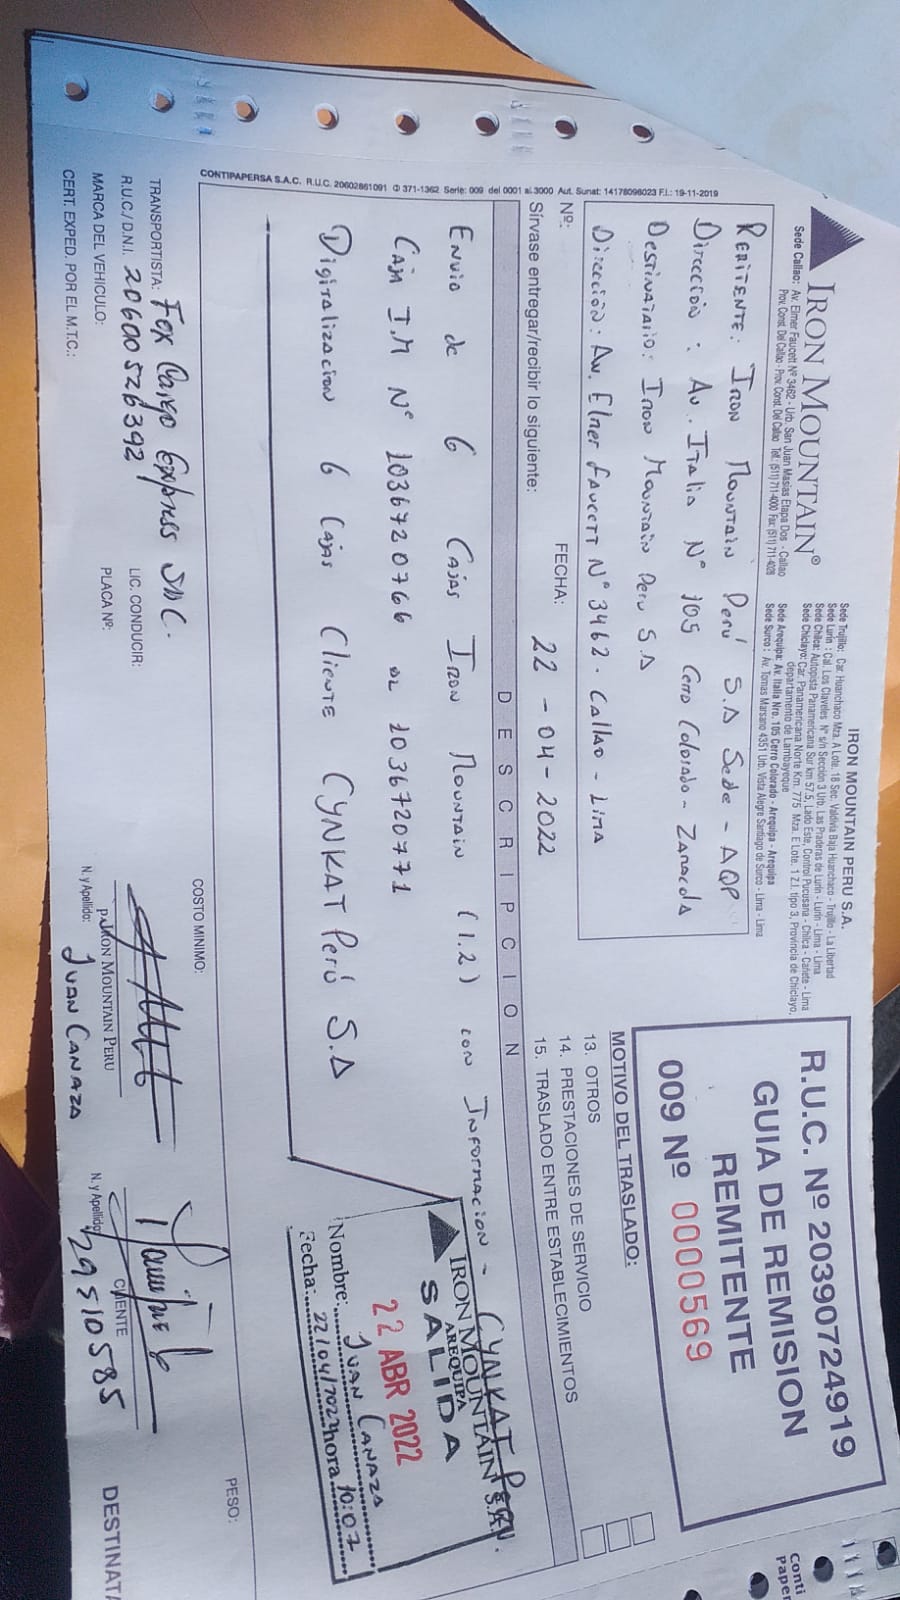 IRON MOUNTAIN®
Sede Callao: Av. Elmer Faucett Nº 3462 - Urb. San Juan Masias Etapa Dos - Callao
Prov. Const. Del Callao - Prov. Const. Del Callao Telf.: (511) 711-4000 Fax: (511) 711-4028
IRON MOUNTAIN PERU S.A.
Sede Trujillo: Car. Huanchaco Mza. A Lote. 18 Sec. Valdivia Baja Huanchaco - Trujillo - La Libertad
Sede Lurin : Cal. Los Claveles Nº s/n Sección 3 Urb. Las Praderas de Lurín - Lurin - Lima - Lima
Sede Chilca: Autopista Panamericana Sur km 57.5, Lado Este, Control Pucusana - Chilca - Cañete - Lima
Sede Chiclayo: Car. Panamericana Norte Km. 775 Mza. E Lote. 1 Z.I. tipo 3, Provincia de Chiclayo,
departamento de Lambayeque
Sede Arequipa: Av. Italia Nro. 105 Cerro Colorado - Arequipa - Arequipa
Sede Surco : Av. Tomas Marsano 4351 Urb. Vista Alegre Santiago de Surco - Lima - Lima
R.U.C. Nº 20390724919
GUIA DE REMISION
REMITENTE
009 Nº 0000569
REMITENTE: IRON MOUNTAIN Perú S.A Sede - AQP
Dirección : Av. Italia N° 105 Cerro Colorado - Zamacola
Destinatario: IRON MOUNTAIN Peru S.A
Dirección: Av. Elmer Faucett N° 3462. Callao - Lima
MOTIVO DEL TRASLADO:
13. OTROS
14. PRESTACIONES DE SERVICIO
15. TRASLADO ENTRE ESTABLECIMIENTOS
Nº:
FECHA: 22 - 04 - 2022
Sírvase entregar/recibir lo siguiente:
DESCRIPCION
Envio de 6 Cajas IRON MOUNTAIN (1.2) con Informacion - CYNKAT Perú.
Caja I.M N° 1036720766 al 1036720771
Digitalizacion 6 Cajas Cliente CYNKAT Perú S.A
IRON MOUNTAIN S.A.
AREQUIPA
SALIDA
22 ABR 2022
Nombre: Juan Canaza
Fecha: 22/04/2022 hora 10:07
CONTIPAPERSA S.A.C. R.U.C. 20602861091 ✆ 371-1362 Serie: 009 del 0001 al 3000 Aut. Sunat: 14178096023 F.I.: 19-11-2019
COSTO MINIMO:
PESO:
TRANSPORTISTA: Fox Cargo Express SAC.
R.U.C./D.N.I. 20600526392
LIC. CONDUCIR:
MARCA DEL VEHICULO:
PLACA Nº:
CERT. EXPED. POR EL M.T.C.:
p. IRON MOUNTAIN PERU
N. y Apellido: Juan Canaza
CLIENTE
N. y Apellido: 29510585
DESTINATA
Conti
paper